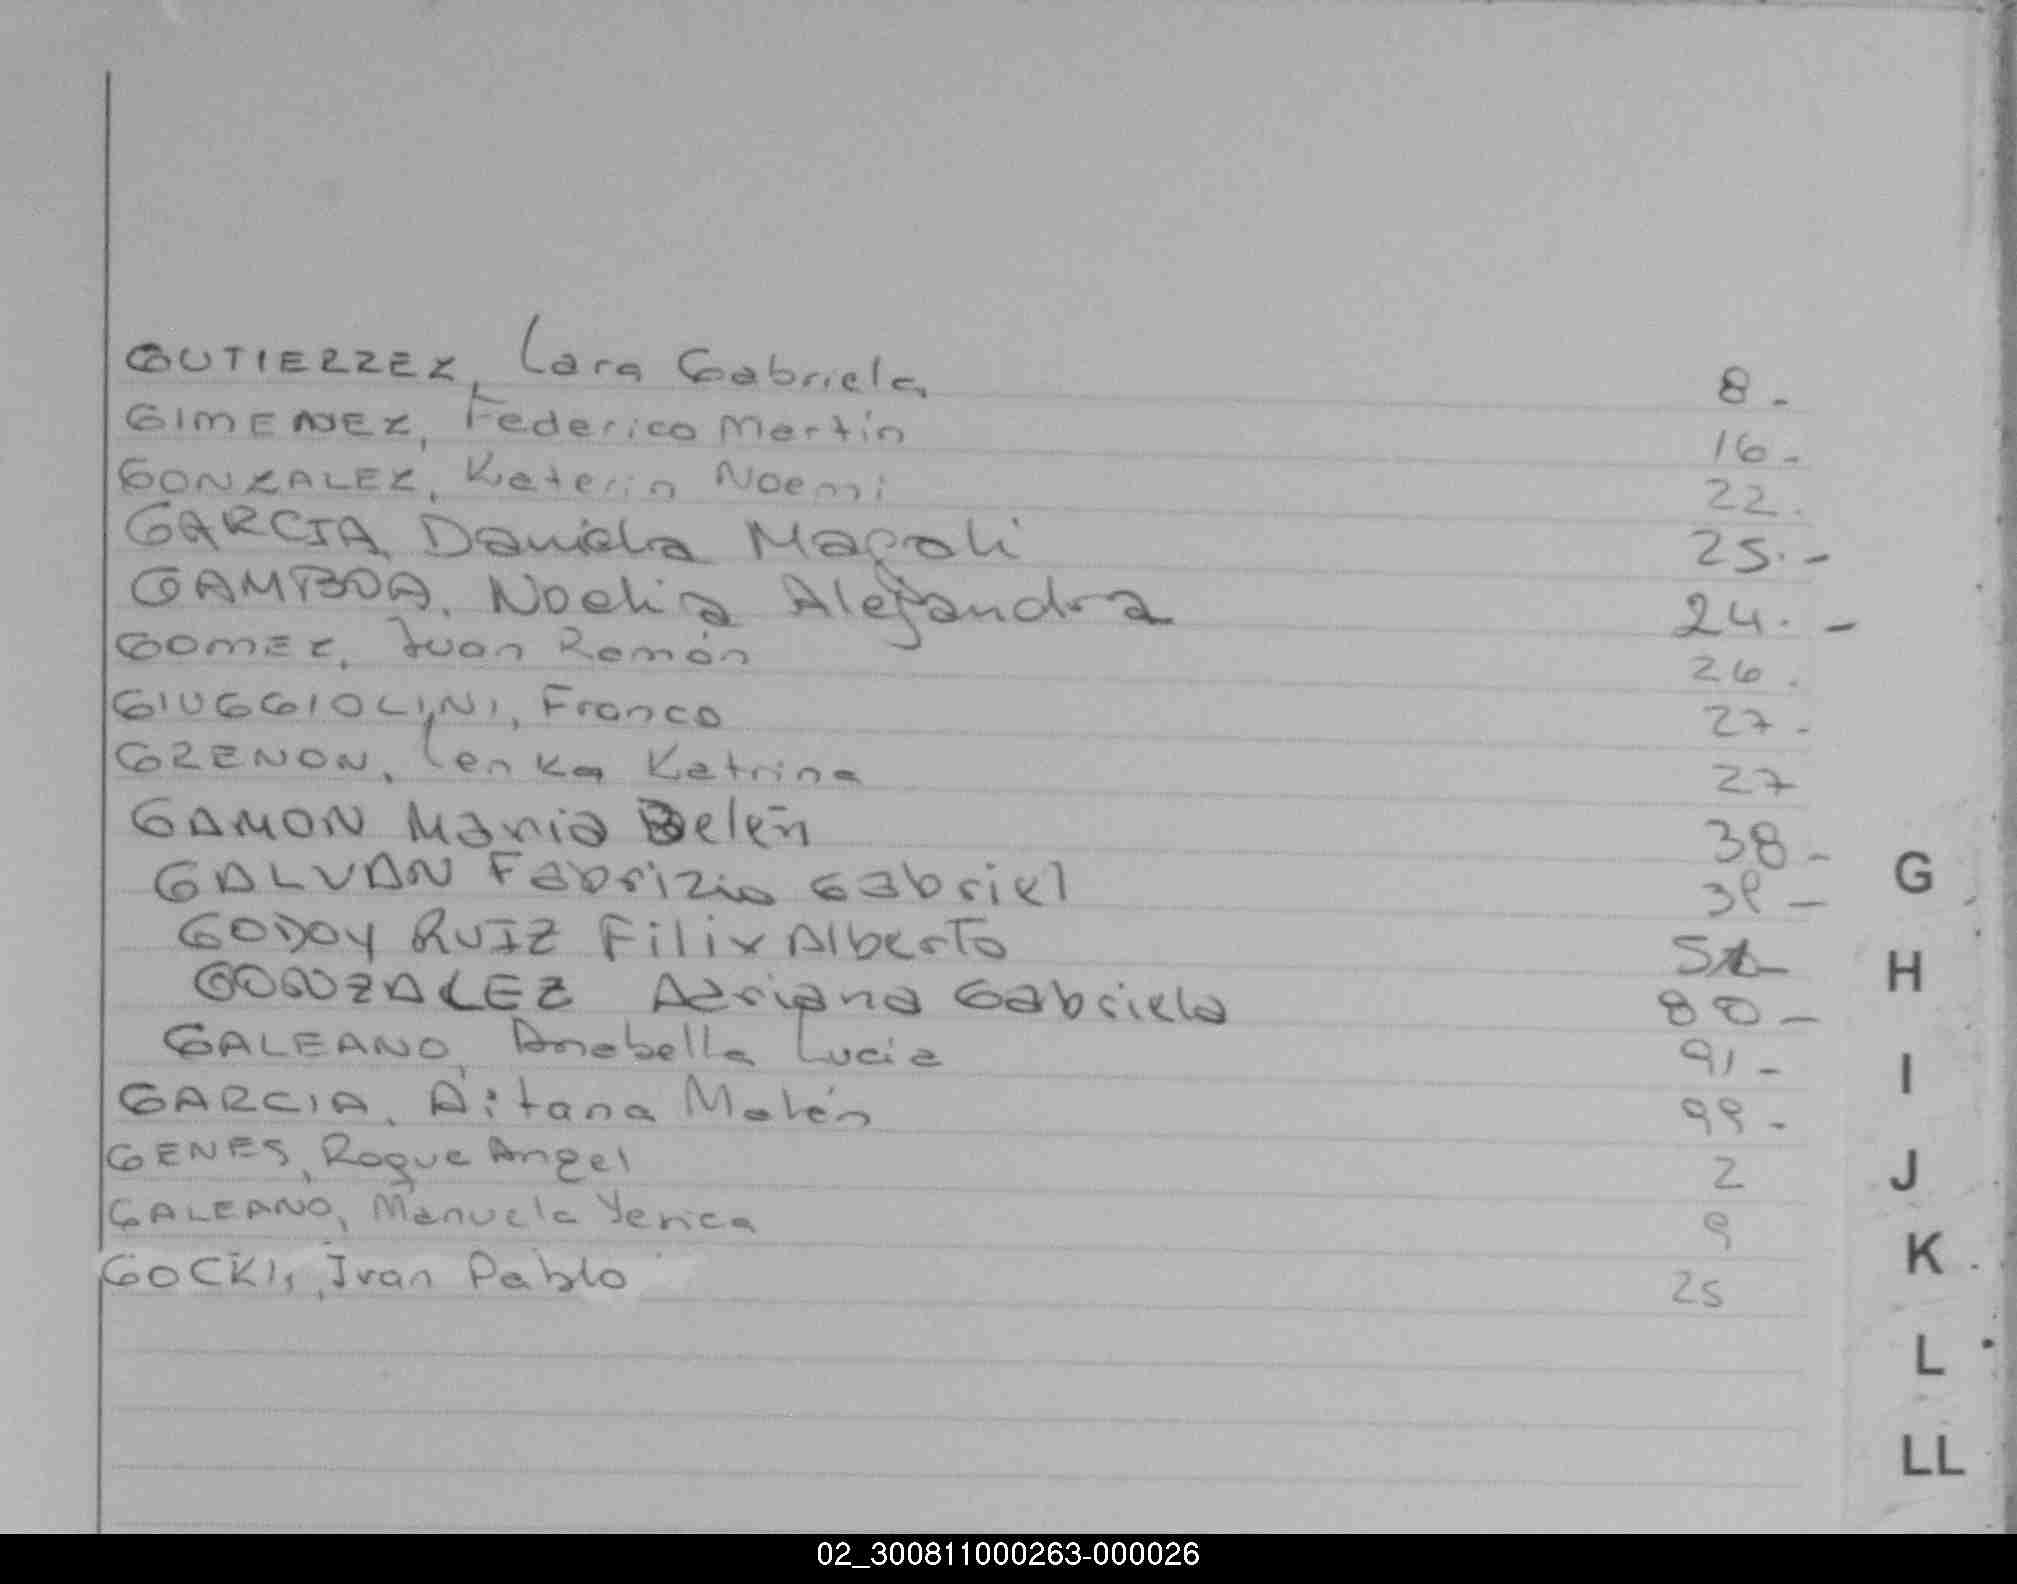 GUTIERREZ, Lara Gabriela, 8.-
GIMENEZ, Federico Martín 16.-
GONZALEZ, Katerin Noemi 22.
GARCIA, Daniela Magali 25.-
GAMBOA, Noelia Alejandra 24.-
GOMEZ, Juan Ramón 26.
GIUGGIOLINI, Franco 27.-
GRENON, Lenka Katrina 27
GAMON Maria Belén 38-
GALVAN Fabrizio Gabriel 39-
GODOY RUIZ Filix Alberto
GONZALEZ Adriana Gabriela 80-
GALEANO, Anabella Lucia 91-
GARCIA, Aitana Malén 99-
GENES, Roque Angel 2
GALEANO, Manuela Yerica 9
GOCKI, Ivan Pablo 25
G
H
I
J
K
L
LL
02_300811000263-000026